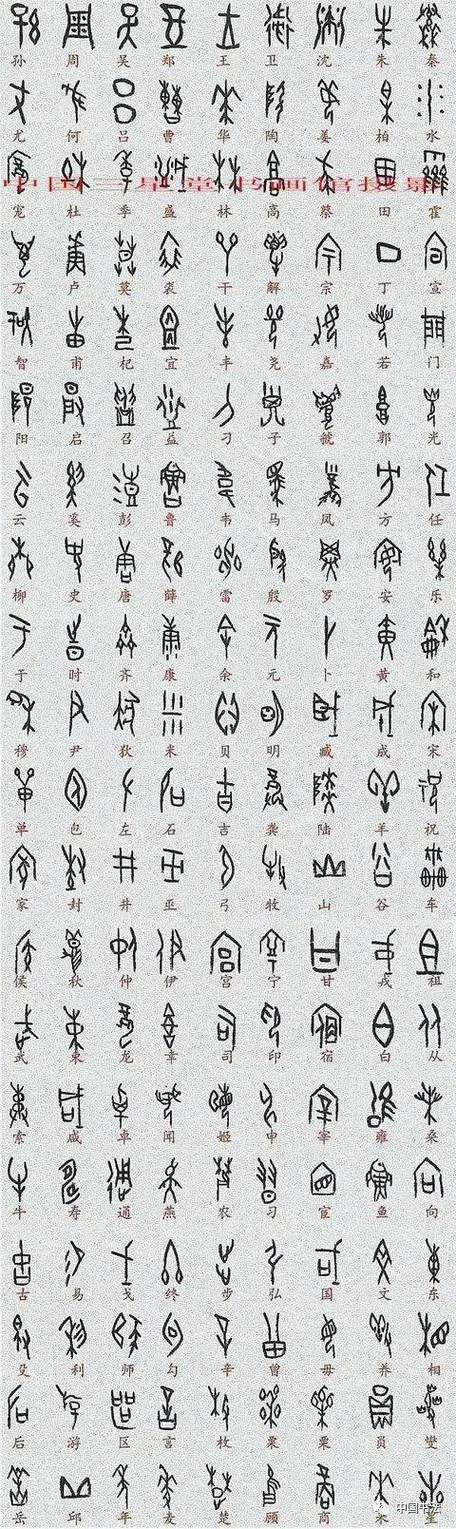 孙 周 吴 郑 王 卫 沈 朱 秦
尤 何 吕 曹 华 陶 姜 柏 水
中国三星堂书画馆摄影
宠 杜 季 盛 林 高 蔡 田 霍
万 卢 莫 裘 干 解 宗 丁 宣
智 甫 杞 宜 丰 尧 嘉 若 门
阳 启 召 益 刁 子 虢 郭 光
云 奚 彭 鲁 韦 马 凤 方 任
柳 史 唐 薛 雷 殷 罗 安 乐
于 时 齐 康 余 元 卜 黄 和
穆 尹 狄 米 贝 明 臧 成 宋
单 包 左 石 吉 龚 陆 羊 祝
家 封 井 巫 弓 牧 山 谷 车
侯 秋 仲 伊 宫 宁 甘 戎 祖
武 束 龙 幸 司 印 宿 白 从
索 咸 卓 闻 姬 申 宰 雍 桑
牛 寿 通 燕 农 习 宦 鱼 向
古 易 戈 终 步 弘 国 文 东
殳 利 师 勾 辛 曾 毋 养 相
后 游 区 言 枚 粟 栗 员 燮
岳 邱 年 麦 楚 顾 商 来 星
中国书法